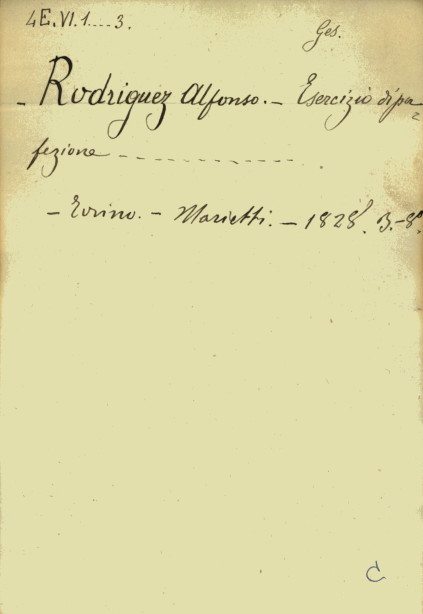 4E.VI.1....3.
Ges.
- Rodriguez Alfonso. - Esercizio di per=
fezione - - - - - - - - - - .
- Torino. - Marietti. - 1828. 3.-8º.
C